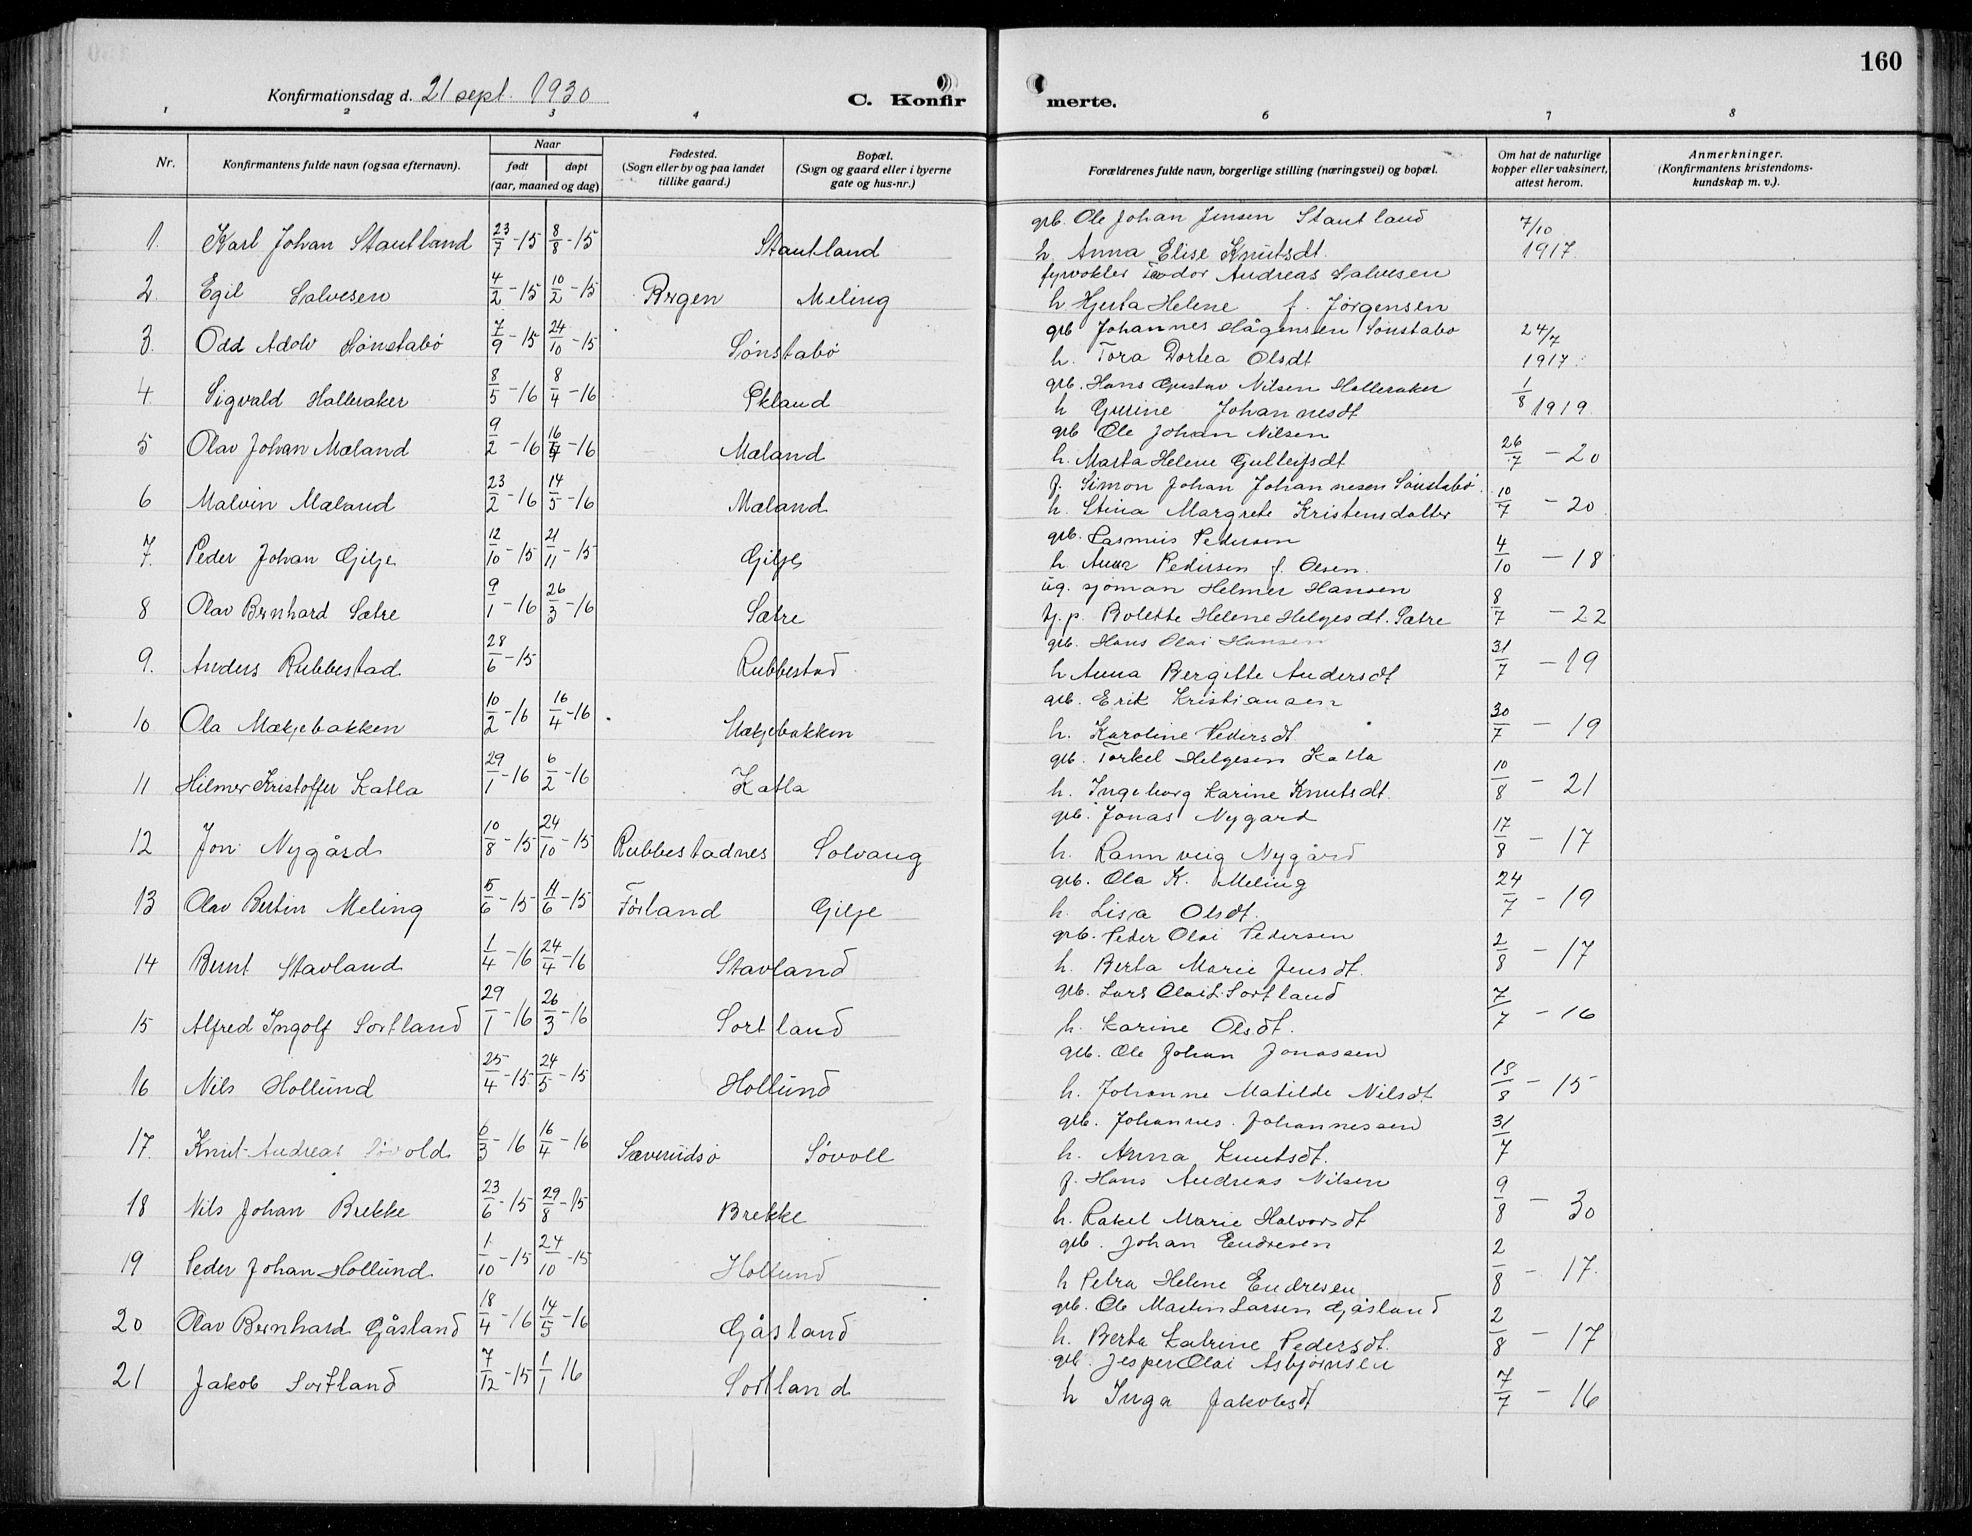 160
Konfirmationsdag d. 21 sept. 1930
C. Konfirmerte.
1 2 3 4 6 7 8
Nr.
Konfirmantens fulde navn (ogsaa efternavn).
Naar
født døpt
(aar, maaned og dag)
Fødested.
(Sogn eller by og paa landet
tillike gaard.)
Bopæl.
(Sogn og gaard eller i byerne
gate og hus-nr.)
Forældrenes fulde navn, borgerlige stilling (næringsvei) og bopæl.
Om hat de naturlige
kopper eller vaksinert,
attest herom.
Anmerkninger.
(Konfirmantens kristendoms-
kundskap m. v.).
1. Karl Johan Stautland 23/7-15 8/8-15 Stautland grb. Ole Johan Jensen Stautland 7/10
h. Anna Elise Knutsdt. 1917.
2. Egil Salvesen 4/2-15 10/2-15 Brgen Meling fyrvokter Teodor Andreas Salvesen
h Hjerta Helene f. Jørgensen
3. Odd Adolv Sønstabø 7/9-15 24/10-15 Sønstabø grb Johannes Hågensen Sønstabø 24/7
h. Tora Dortea Olsdt 1917.
4. Sigvald Halleraker 8/5-16 8/4-16 Ekland grb. Hans Gustav Nilsen Halleraker 1/8
h Gurine Johannesdt 1919
5 Olav Johan Mæland 9/2-16 16/4-16 Mæland grb Ole Johan Nilsen
h. Marta Helene Gulleifsdt 26/7-20
6 Malvin Mæland 23/2-16 14/5-16 Mæland f. Simon Johan Johannesen Sønstabø.
h. Stina Margrete Kristensdatter 10/7-20
7. Peder Johan Gilje 12/10-15 21/11-15 Gilje grb. Rasmus Pedersen
h Anna Pedersen f. Olsen. 4/10-18
8 Olav Bernhard Sætre 9/1-16 26/3-16 Sætre ug. sjøman Helmer Hansen
tj. p. Bolette Helene Helgesdt. Sætre 8/7-22
9. Anders Rubbestad 28/6-15 Rubbestad grb. Hans Olai Hansen
h Anna Bergitte Andersdt 31/7-19
10 Ola Mækjebakken 10/2-16 16/4-16 Mækjebakken grb. Erik Kristiansen
h. Karoline Pedersdt. 30/7-19
11 Hilmer Kristoffer Katla 29/1-16 6/2-16 Katla grb. Torkel Helgesen Katla
h. Ingeborg Karine Knutsdt. 10/8-21
12 Jon Nygård 10/8-15 24/10-15 Rubbestadnes Solvang grb. Jonas Nygård
h. Rannveig Nygård 17/8-17
13 Olav Bertin Meling 5/6-15 11/6-15 Førland Gilje grb. Ola K. Meling
h. Lisa Olsdt. 24/7-19
14 Bernt Stavland 1/4-16 24/4-16 Stavland grb. Peder Olai Pedersen
h. Berta Marie Jensdt. 2/8-17
15 Alfred Ingolf Sortland 29/1-16 26/3-16 Sortland grb. Lars Olai L. Sortland
h. Karine Olsdt. 7/7-16
16 Nils Hollund 25/4-15 24/5-15 Hollund grb. Ole Johan Jonassen
h. Johanne Matilde Nilsdt 18/8-15
17. Knut Andreas Søvold 6/3-16 16/4-16 Søvoll grb. Johannes Johannessen 31/7
h. Anna Knutsdt.
18 Nils Johan Brekke 23/6-15 29/8-15 Brekke f. Hans Andreas Nilsen
h. Rakel Marie Halvorsdt 9/8-30
19 Peder Johan Hollund 1/10-15 24/10-15 Hollund grb. Johan Endresen
h Petra Helene Endresen 2/8-17.
20 Olav Bernhard Gåsland 18/4-16 14/5-16 Gåsland grb. Ole Martin Larsen Gåsland
h. Berta Katrine Pedersdt. 2/8-17
21 Jakob Sortland 7/12-15 1/1 16 Sortland grb. Jesper Olai Asbjørnsen
h Inga Jakobsdt 7/7-16